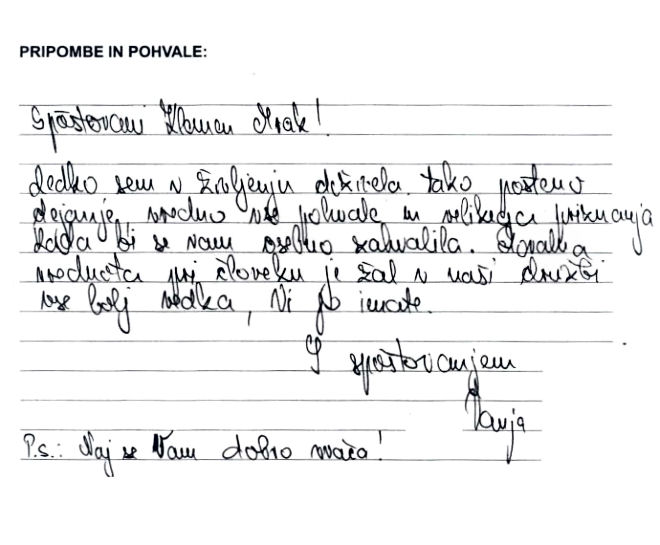 PRIPOMBE IN POHVALE:
Spoštovani Klemen Mrak!
Redko sem v življenju doživela tako pošteno
dejanje, vredno vse pohvale in velikega priznanja
Rada bi se vam osebno zahvalila. Moralna
vrednota pri človeku je žal v naši družbi
vse bolj redka, Vi jo imate.
S spoštovanjem
Vanja
P.s.: Naj se Vam dobro vrača!